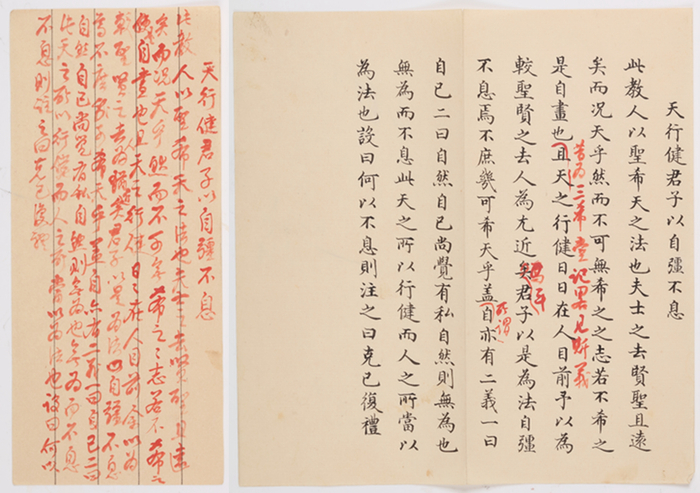 天行健君子以自彊不息
此教人以聖希天之法也夫士之去賢聖且遠
矣而况天乎然而不可無希之之志若不希之
是自畫也且天之行健日日在人目前予以為
昔為三希堂記畧見斯義
較聖賢之去人為尤近矣君子以是為法自彊
所謂
不息焉不庶幾可希天乎蓋自亦有二義一曰
自己二曰自然自己尚覺有私自然則無為也
無為而不息此天之所以行健而人之所當以
為法也設曰何以不息則注之曰克己復禮
天行健君子以自彊不息
此教人以聖希天之法也夫士之去賢聖且遠
矣而况天乎然而不可無希之之志若不希之
是自畫也且天之行健日日在人目前余以為
較聖賢之去人為尤近矣君子以是為法自彊不息
焉不庶幾可希天乎蓋自亦有二義一曰自己二曰
自然自己尚覺有私自然則無為也無為而不息
此天之所以行健而人之所當以為法也設曰何以
不息則注之曰克己復禮